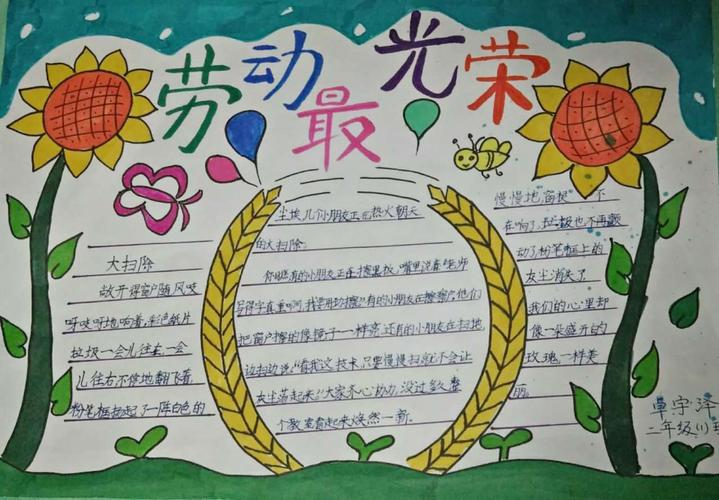 劳动最光荣
大扫除
敞开得窗户随风吱
呀吱呀地响着彩色纸片
垃圾一会儿往左一会
儿往右不停地翻飞着.
粉笔框扬起了一阵白色的
尘埃儿们小朋友正在热火朝天
的大扫除
你瞧有的小朋友正在擦黑板,嘴里说着“老师
写得字真重啊,我要用力擦”有的小朋友在擦窗户,他们
把窗户擦的像镜子一样亮还有的小朋友在扫地,
边扫边说“看我这技术,只要慢慢扫就不会让
灰尘荡起来”大家齐心协力,没过多久整
个教室看起来焕然一新.
慢慢地窗 一下
在响了,垃圾也不再翻
动了粉笔框上的
灰尘消失了
我们的心里却
像一朵盛开的
玫瑰一样美
丽.
单宇泽
二年级(1)班